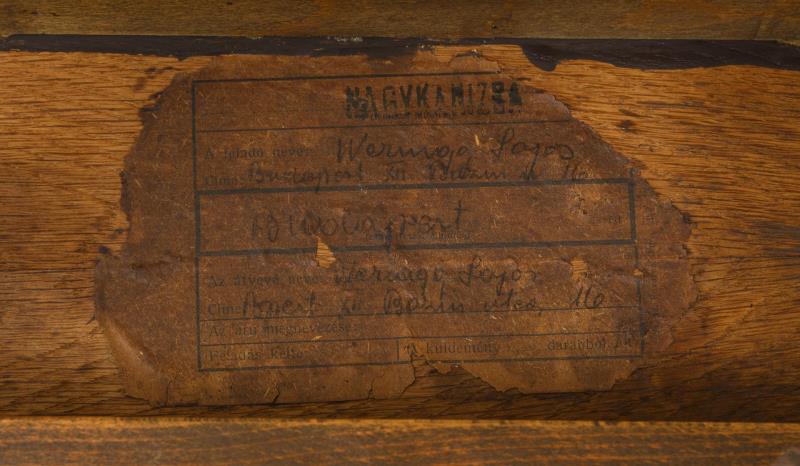 NAGYKANIZSA
A feladó neve: Weringa Lajos
Címe: Budapest XII. u. 16
Budapest
Az átvevő neve: Weringa Lajos
Címe: Bpest XII. utca, 16
Az áru megnevezése:
Feladás kelte: A küldemény darabból áll